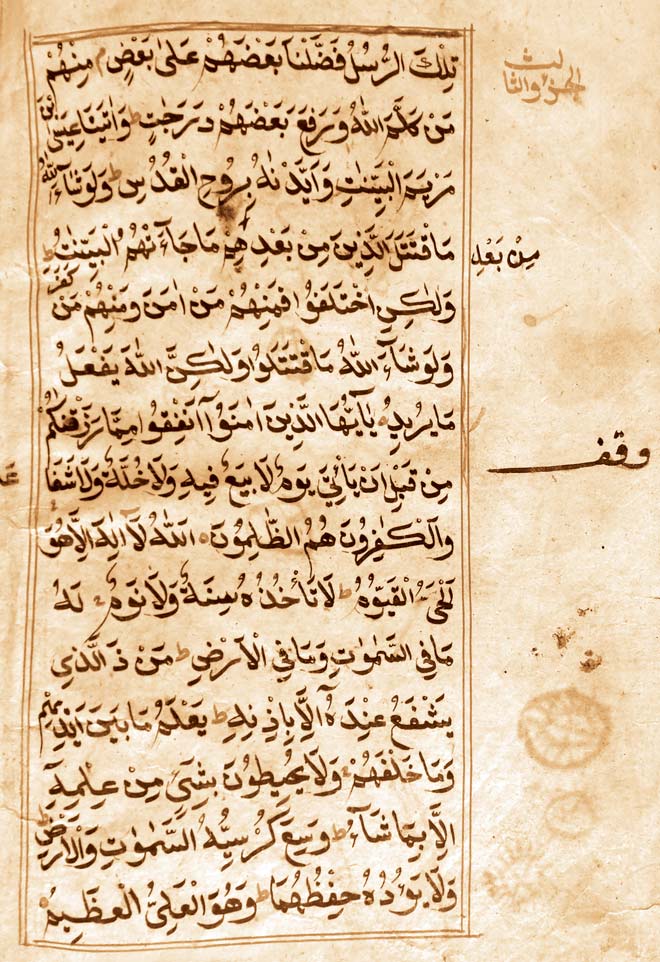 تِلْكَ الرُّسُلُ فَضَّلْنَا بَعْضَهُمْ عَلىٰ بَعْضٍ م مِنْهُمْ
مَنْ كَلَّمَ اللّٰهُ وَرَفَعَ بَعْضَهُمْ دَرَجٰتٍ ط وَاٰتَيْنَا عِيسَى ابْنَ
مَرْيَمَ الْبَيِّنٰتِ وَاَيَّدْنٰهُ بِرُوحِ الْقُدُسِ ط وَلَوْ شَآءَ اللّٰهُ
مَا قْتَتَلَ الَّذِينَ مِنْ بَعْدِهِمْ مَا جَآءَتْهُمُ الْبَيِّنٰتُ
مِنْ بَعْدِ
وَلٰكِنِ اخْتَلَفُوا فَمِنْهُمْ مَنْ اٰمَنَ وَمِنْهُمْ مَنْ كَفَرَ ط
وَلَوْ شَآءَ اللّٰهُ مَا قْتَتَلُوا وَلٰكِنَّ اللّٰهَ يَفْعَلُ
مَا يُرِيدُ يٰآ اَيُّهَا الَّذِينَ اٰمَنُوآ اَنْفِقُوا مِمَّا رَزَقْنٰكُمْ
مِنْ قَبْلِ اَنْ يَاْتِيَ يَوْمٌ لَا بَيْعٌ فِيهِ وَلَا خُلَّةٌ وَلَا شَفَا
وَالْكٰفِرُونَ هُمُ الظّٰلِمُونَ اَللّٰهُ لَآ اِلٰهَ اِلَّا هُوَ
اَلْحَيُّ الْقَيُّومُ ط لَا تَاْخُذُهُ سِنَةٌ وَلَا نَوْمٌ لَهُ
مَا فِي السَّمٰوٰتِ وَمَا فِي الْاَرْضِ ط مَنْ ذَ الَّذِي
يَشْفَعُ عِنْدَهُ اِلَّا بِاِذْنِهِ ط يَعْلَمُ مَا بَيْنَ اَيْدِيهِمْ
وَمَا خَلْفَهُمْ وَلَا يُحِيطُونَ بِشَيْءٍ مِنْ عِلْمِهِ
اِلَّا بِمَا شَآءَ ط وَسِعَ كُرْسِيُّهُ السَّمٰوٰتِ وَالْاَرْضَ ط
وَلَا يَؤُدُهُ حِفْظُهُمَا ط وَهُوَ الْعَلِيُّ الْعَظِيمُ
الجزو الثالث
وقف